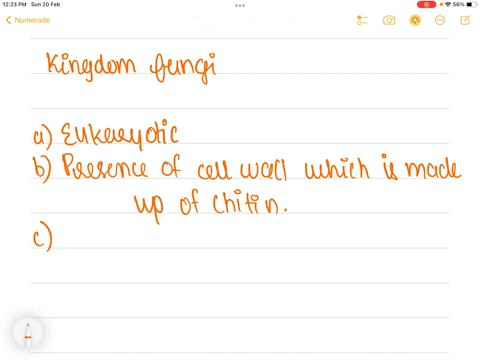 12:23 PM Sun 20 Feb
56%
Numerade
Kingdom fungi
a) Eukaryotic
b) Presence of cell wall which is made
up of chitin.
c)